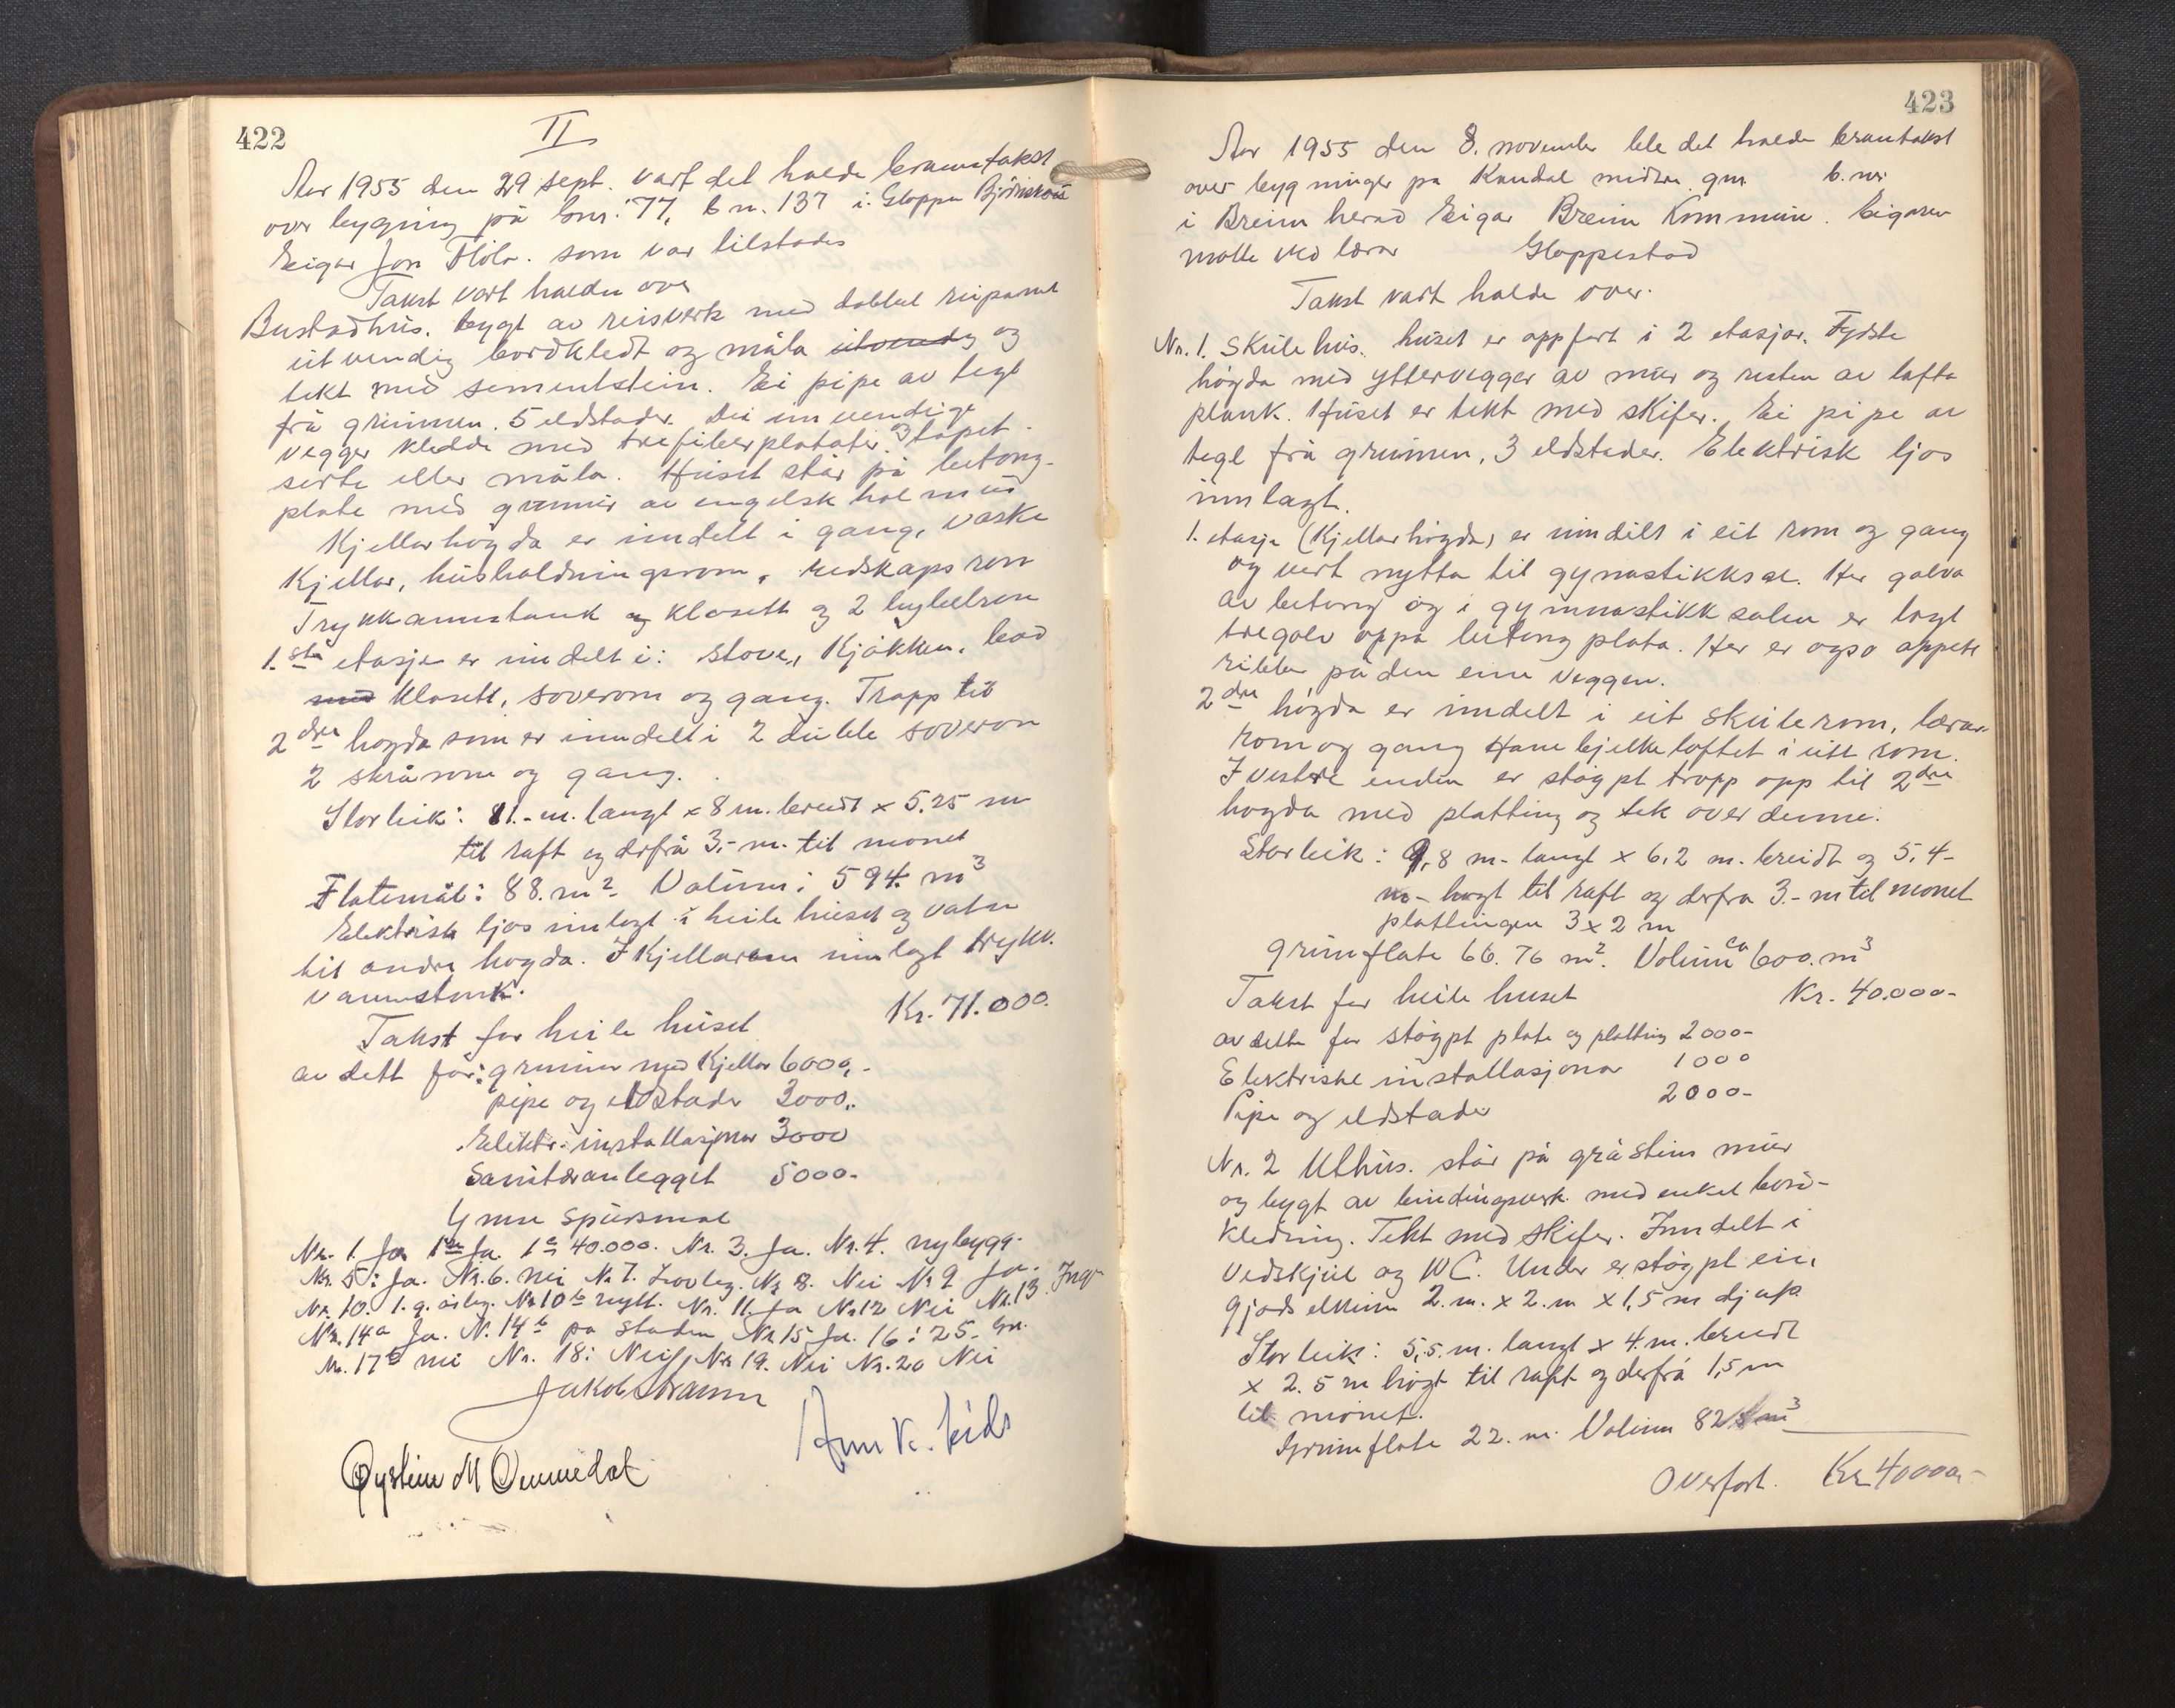 422
II
Aar 1955 den 29 sept. vart det halde branntakst
over bygning på Gnr. 77, b n. 137 i. Gloppen
Eigar Jon Flölo. som var tilstades
Takst vart halden over
Bustadhus. bygt av reisverk med dobbel
utvendig bordkledt og måla utvendig og
tekt med sementstein. Ei pipe av tegl
frå grunnen. 5 eldstader. Dei innvendige
vegger kledde med trefiberplatater og tapet-
serte eller måla. Huset står på betong-
plate med grunnmur av engelsk hol mur
Kjellarhögda er inndelt i gang, vaske
Kjellar, husholdningsrom, redskaps rom
Trykkannstank og klosett og 2 hybelrom
1.ste etasje er inndelt i: stove, Kjökken, bad
med klosett, soverom og gang. Trapp til
2dre hogda som er inndelt i 2 duble soverom
2 skrårom og gang.
Storleik: 11.- m. langt x 8 m. breidt x 5.25 m
til raft og derfrå 3,- m. til mönet
Flatemål: 88. m2 Volum: 594. m3
Elektrisk ljos innlagt i heile huset og vatn
til andre hogda. I Kjellaren innlagt trykk.
vannstank.
Takst for heile huset Kr. 71.000.
av dett for: grunnmur med Kjellar 6000,-
pipe og eldstader 3000,.
Elektr. installasjonar 3000
Sanitæranlegget 5000-
Ymse spursmal
Nr. 1. Ja 1 Ja. 1 c 40.000. Nr. 3. Ja. Nr. 4. nybygg.
Nr. 5: Ja. Nr. 6. nei N. 7. Lovleg. Nr 8. Nei Nr 9 Ja.
Nr. 10. 1. g. årleg. Nr 10 b nytt. Nr. 11. Ja Nr 12 Nei Nr. 13. Ing
Nr. 14a Ja. N. 14b på staden Nr 15 Ja. 16: 25.
Nr. 17 b nei Nr. 18: Nei Nr 19. Nei Nr. 20 Nei
Øystein M Ommedal
423
Aar 1955 den 8. november ble det halde branntakst
over bygninger på Kandal midtre gnr b. nr.
i Breim herad Eigar Breim Kommune. Eigaren
møtte ved lærar Gloppestad
Takst vart halde over.
Nr. 1. Skulehus. huset er oppfört i 2 etasjar. Fydste
högda med yttervegger av mur og resten av lafta
plank. Huset er tekt med skifer. Ei pipe av
tegl frå grunnen, 3 eldstader. Elektrisk ljos
innlagt.
1. etasje (Kjellarhögda) er inndelt i eit rom og gang
og vert nytta til gynastikksal. Her golva
av betong og i gymnastikksalen er lagt
tregolv oppå betong plata. Her er også oppsett
ribber på den eine veggen.
2dre högda er inndelt i eit skulerom, lærar-
rom og gang Hane bjelkeloftet i eitt rom.
I vestre enden er stöypt tropp opp til 2dre
hogda med platting og tak over denne.
Storleik: 9,8 m- langt x 6,2 m. breidt og 5,4-
m- høgt til raft og derfra 3.- m til mönet
plattingen 3 x 2 m
Grunnflate 66.76 m2. Volum ca 600. m3
Takst for heile huset Kr. 40.000-
av dette for stöypt plate og platting 2000-
Elektriske installasjonar 1000
Pipe og eldstader 2000-
Nr. 2 Uthus. står på gråsteins mur
og bygt av bindingsverk med enkel bord-
kledning. Tekt med skifer. Inndelt i
Vedskjul og WC. Under er stöypt ein
gjødselkum 2. m. x 2. m x 1,5 m djup.
Storleik: 5,5. m. langt x 4. m. breidt
x 2.5 m högt til raft og derfrå 1,5 m
til mönet.
Grunnflate 22. m. Volum 82 m3
Overfört. Kr 40000,-